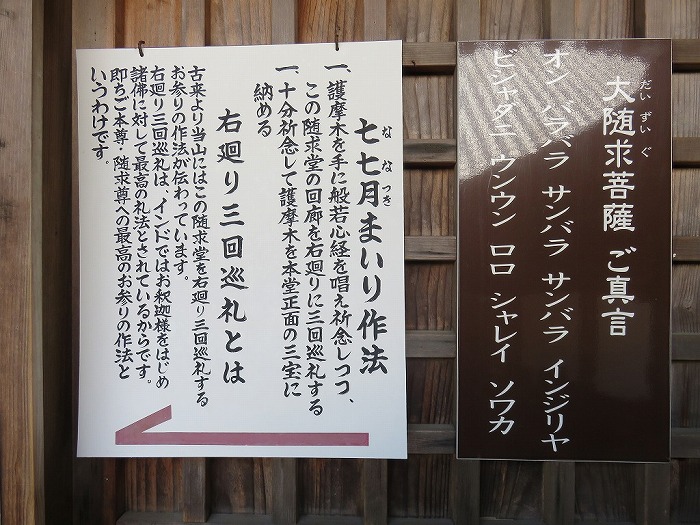 大随求菩薩 ご真言
だい ずい ぐ
オン バラバラ サンバラ サンバラ インジリヤ
ビシャダニ ウンウン ロロ シャレイ ソワカ
七七月まいり作法
な な つき
一、護摩木を手に般若心経を唱え祈念しつつ、
この随求堂の回廊を右廻りに三回巡礼する
一、十分祈念して護摩木を本堂正面の三宝に
納める
右廻り三回巡礼とは
古来より当山にはこの随求堂を右廻り三回巡礼する
お参りの作法が伝わっています。
右廻り三回巡礼は、インドではお釈迦様をはじめ
諸佛に対して最高の礼法とされているからです。
即ちご本尊・随求尊への最高のお参りの作法と
いうわけです。